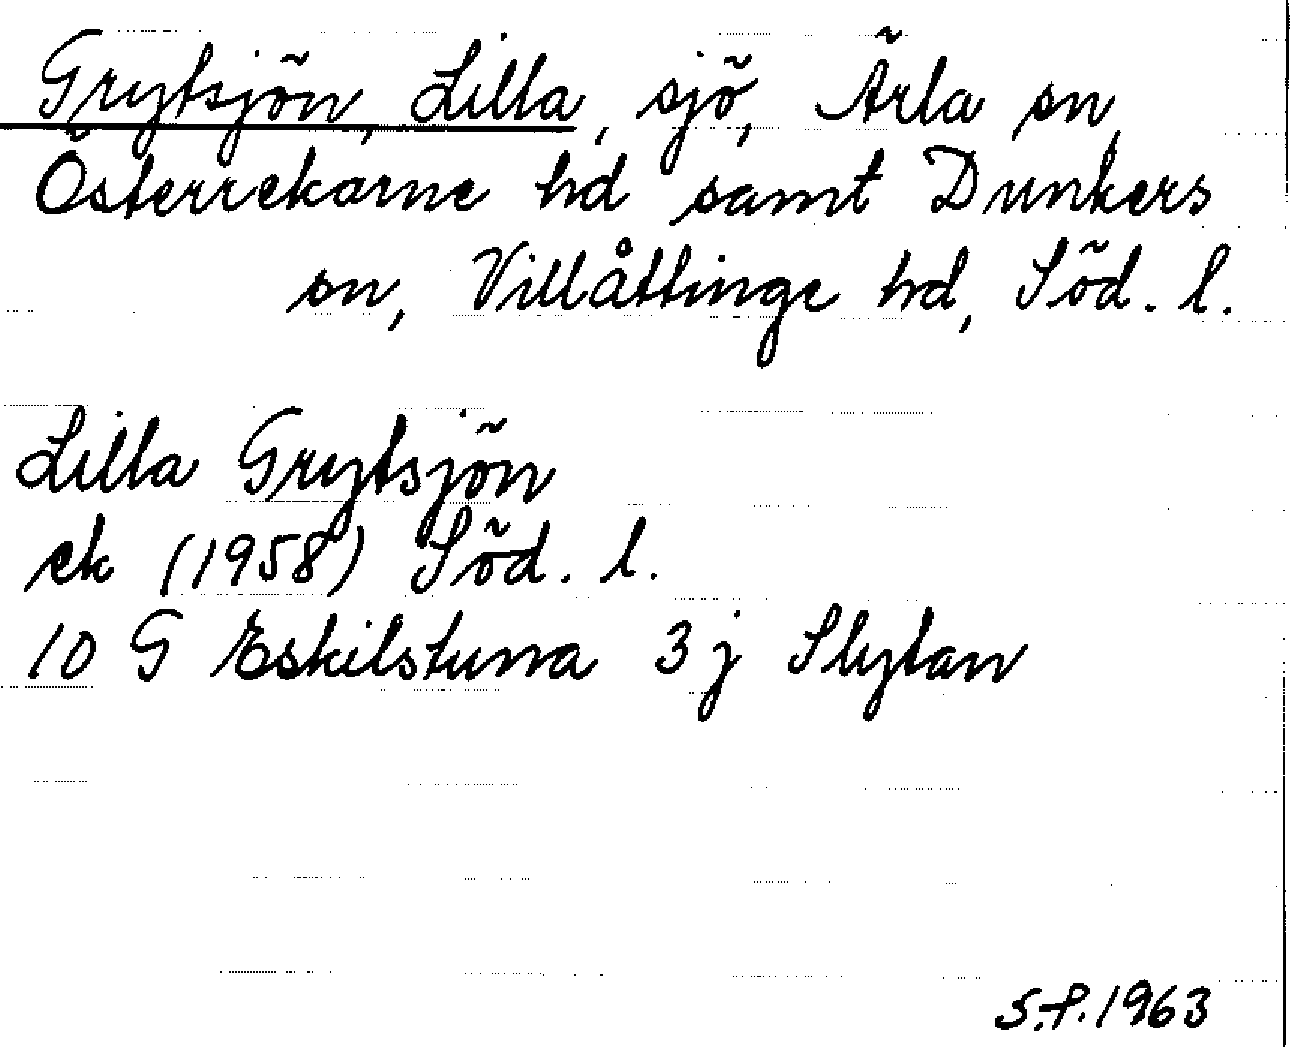 Grytsjön, Lilla, sjö, Ärla sn,
Österrekarne hd samt Dunkers
sn, Villåttinge hd, Söd. l.
Lilla Grytsjön
ek (1958) Söd. l.
10 G Eskilstuna 3 j Slytan
S.P. 1963